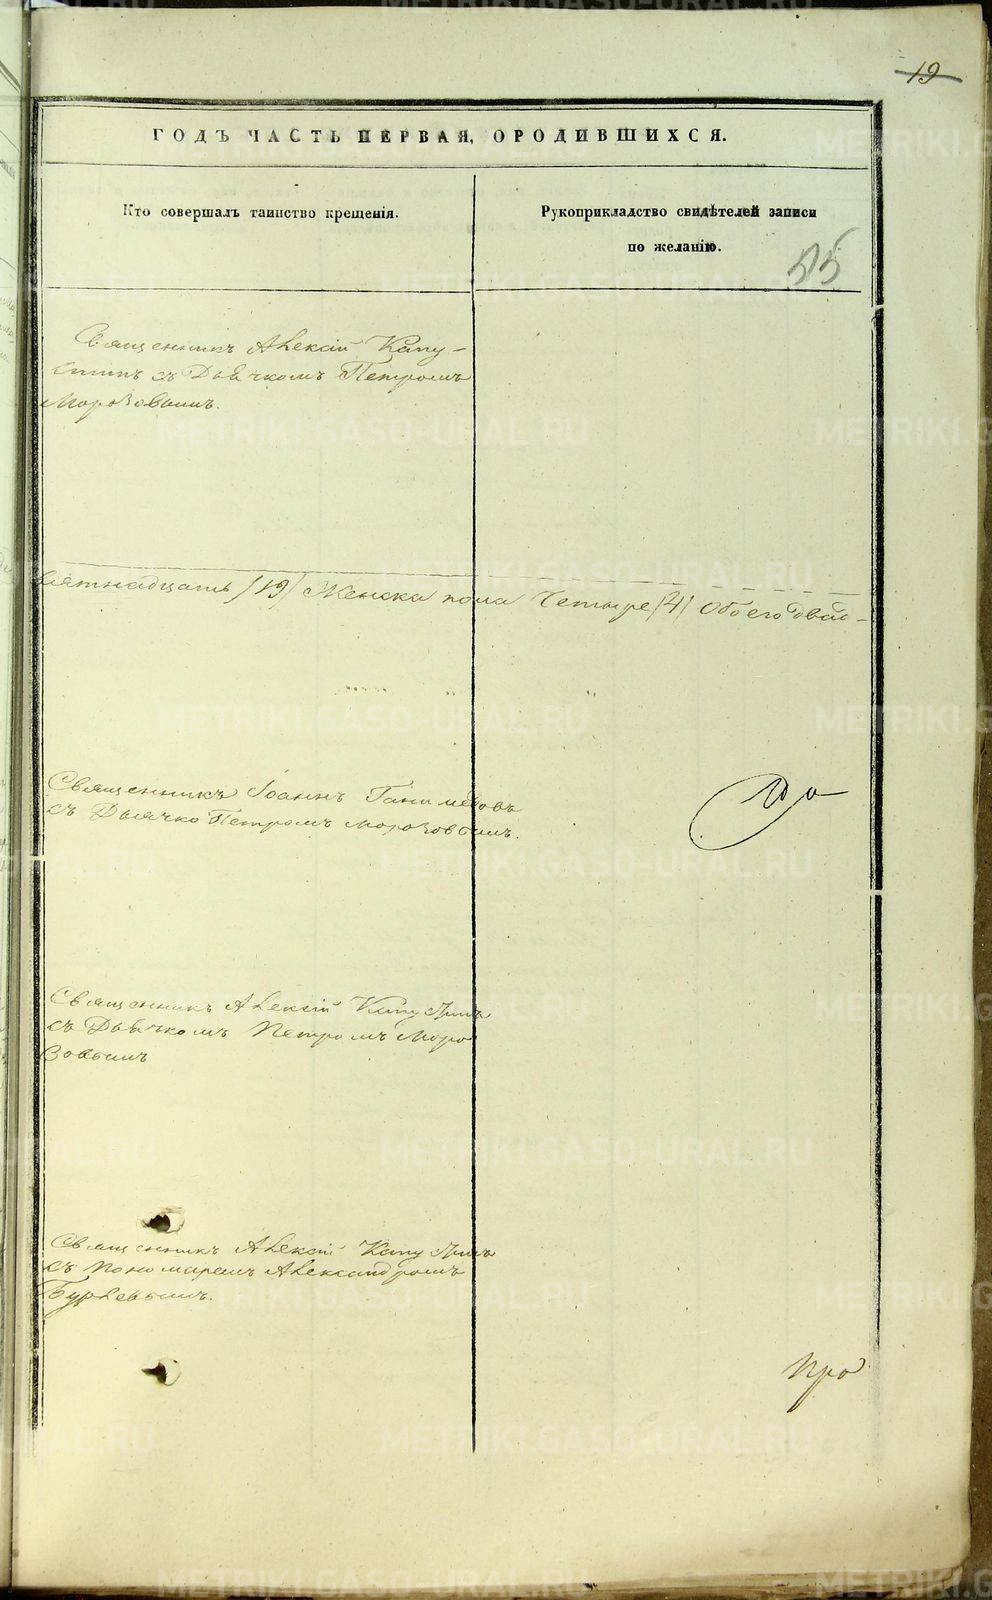 19
ГОДЪ ЧАСТЬ ПЕРВАЯ, ОРОДИВШИХСЯ.
Кто совершалъ таинство крещенія.
Рукоприкладство свидѣтелей записи
по желанію.
55
Священникъ Алексій Капу-
стинъ съ Дьячкомъ Петромъ
Морозовымъ.
вятнадцать /19/ Женска пола Четыре /4/ Обоего
Священникъ Іоаннъ Ганимедовъ
съ Дьячко Петромъ Морозовымъ.
Священникъ Алексій Капустинъ
съ Дьячкомъ Петромъ Моро
зовымъ
Священникъ Алексій Капустинъ
съ Пономаремъ Александромъ
Про
METRIKI.GASO-URAL.RU